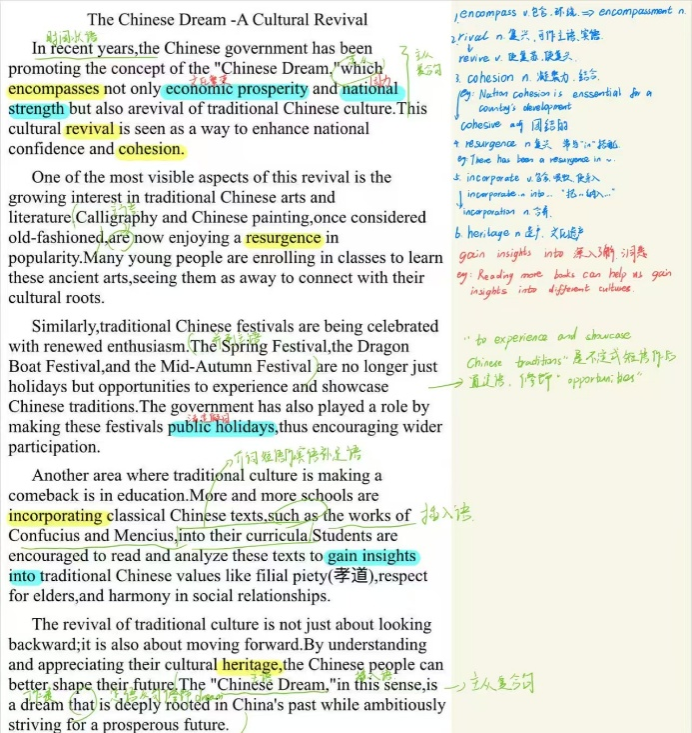 The Chinese Dream -A Cultural Revival
时间状语
In recent years,the Chinese government has been
promoting the concept of the "Chinese Dream,"which
主从
复合句
encompasses not only economic prosperity and national
strength but also arevival of traditional Chinese culture.This
cultural revival is seen as a way to enhance national
confidence and cohesion.
One of the most visible aspects of this revival is the
growing interest in traditional Chinese arts and
literature.Calligraphy and Chinese painting,once considered
old-fashioned,are now enjoying a resurgence in
popularity.Many young people are enrolling in classes to learn
these ancient arts,seeing them as away to connect with their
cultural roots.
Similarly,traditional Chinese festivals are being celebrated
with renewed enthusiasm.The Spring Festival,the Dragon
Boat Festival,and the Mid-Autumn Festival are no longer just
holidays but opportunities to experience and showcase
Chinese traditions.The government has also played a role by
making these festivals public holidays,thus encouraging wider
participation.
Another area where traditional culture is making a
comeback is in education.More and more schools are
incorporating classical Chinese texts,such as the works of
插入语
Confucius and Mencius,into their curricula.Students are
encouraged to read and analyze these texts to gain insights
into traditional Chinese values like filial piety(孝道),respect
for elders,and harmony in social relationships.
The revival of traditional culture is not just about looking
backward;it is also about moving forward.By understanding
and appreciating their cultural heritage,the Chinese people can
better shape their future.The "Chinese Dream,"in this sense,is
主从复合句
a dream that is deeply rooted in China's past while ambitiously
striving for a prosperous future.
1. encompass v.包含、环绕 ⇒ encompassment n.
2. rival n.复兴、可作主语、宾语
revive v.使复苏、使复兴
3. cohesion n.凝聚力、结合
eg: Nation cohesion is enssential for a
country's development
cohesive adj 团结的
4. resurgence n.复兴 常与"in"搭配
eg There has been a resurgence in ~.
5. incorporate v.包含、吸收、使并入
incorporate ~ into... "把...纳入..."
incorporation n.合并
6. heritage n.遗产、文化遗产
gain insights into 深入了解、洞悉
eg: Reading more books can help us gain
insights into different cultures.
"to experience and showcase
Chinese traditions" 是不定式短语作后
置定语、修饰"opportunities"